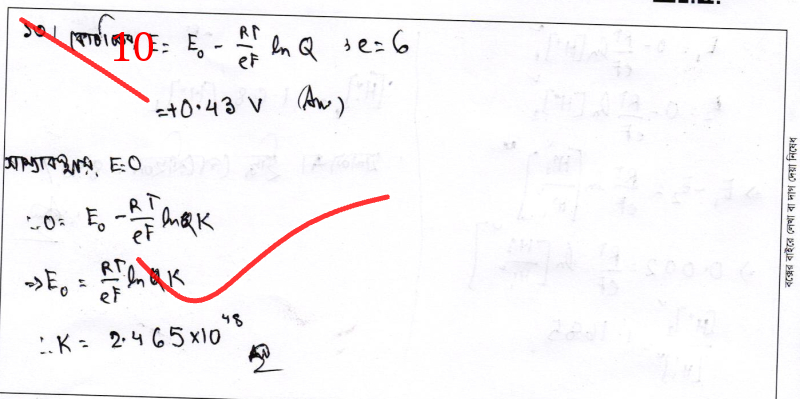 ১০। 10 E = E₀ - RT/eF ln Q ; e = 6
= +0.43 V (Ans)
সাম্যাবস্থায়, E = 0
∴ 0 = E₀ - RT/eF ln K
⇒ E₀ = RT/eF ln K
∴ K = 2.465×10⁴⁸
বক্সের বাইরে লেখা বা দাগ দেয়া নিষেধ